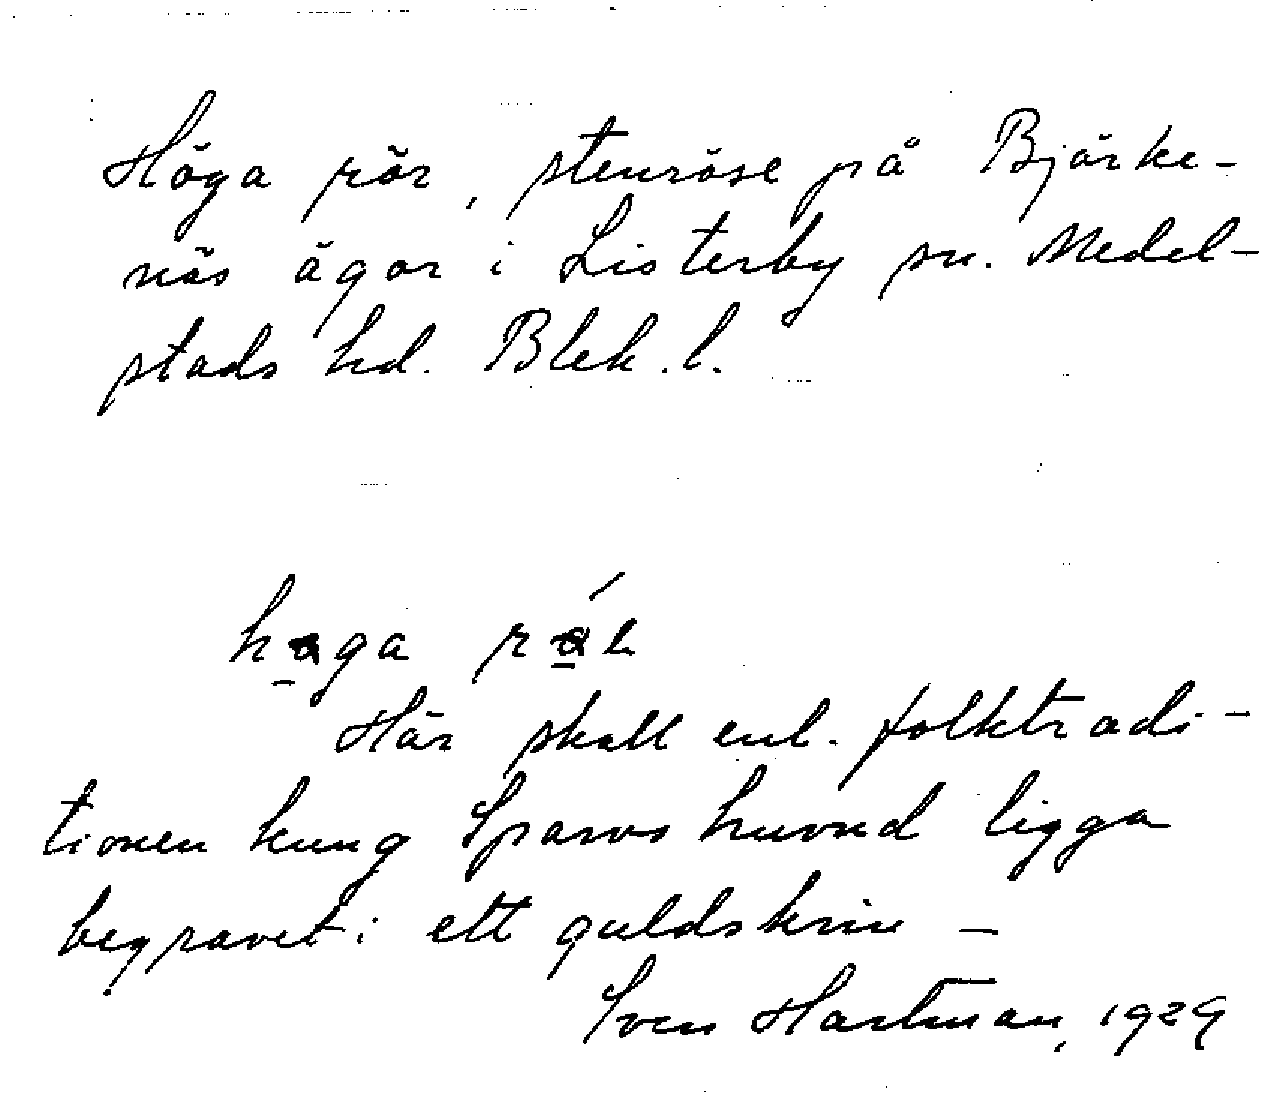 Höga rör, stenröse på Björke-
näs ägor i Listerby sn. Medel-
stads hd. Blek. l.
Här skall enl. folktradi-
tionen kung Sparvs huvud ligga
begravet i ett guldskrin –
Sven Hartman, 1929